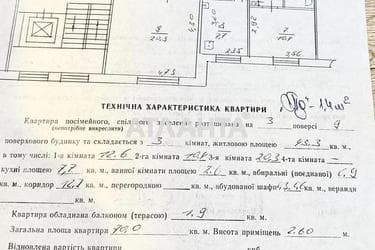 8
20.3
4.73
7.7
2.35
7
10.8
3.56
ТЕХНІЧНА ХАРАКТЕРИСТИКА КВАРТИРИ
1,4 м²
Квартира посімейного, спільного заселення розташована на 3 поверсі 9
(непотрібне викреслити)
поверхового будинку та складається з 3 кімнат, житловою площею 43.3 кв. м,
в тому числі: 1-а кімната 12.6 2-га кімната 10.8 3-я кімната 20.3 4-та кімната –
кухні площею 7,7 кв. м, ванної кімнати площею 2.0 кв. м, вбиральні (поєднаної)
кв. м, коридор кв. м, перегородкою кв. м, вбудованої шафи кв. м, веранди
кв. м.
Квартира обладнана балконом (терасою) 1.9 кв. м.
Загальна площа квартири 70,0 кв. м. Висота приміщень 2.60 м.
Відновлена вартість квартири